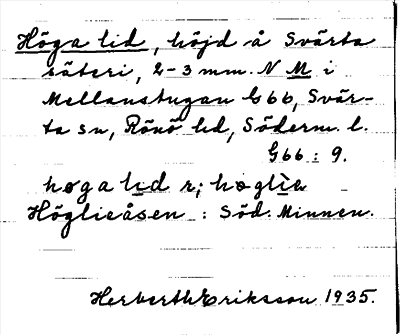 Höga lid, höjd å Svärta
säteri, 2-3 mm. N M i
Mellanstugan G 66, Svär-
ta sn, Rönö hd, Söderm. l.
G 66 : 9.
hoga lid r; hoglie
Höglieåsen : Söd. Minnen.
Herberth Eriksson 1935.